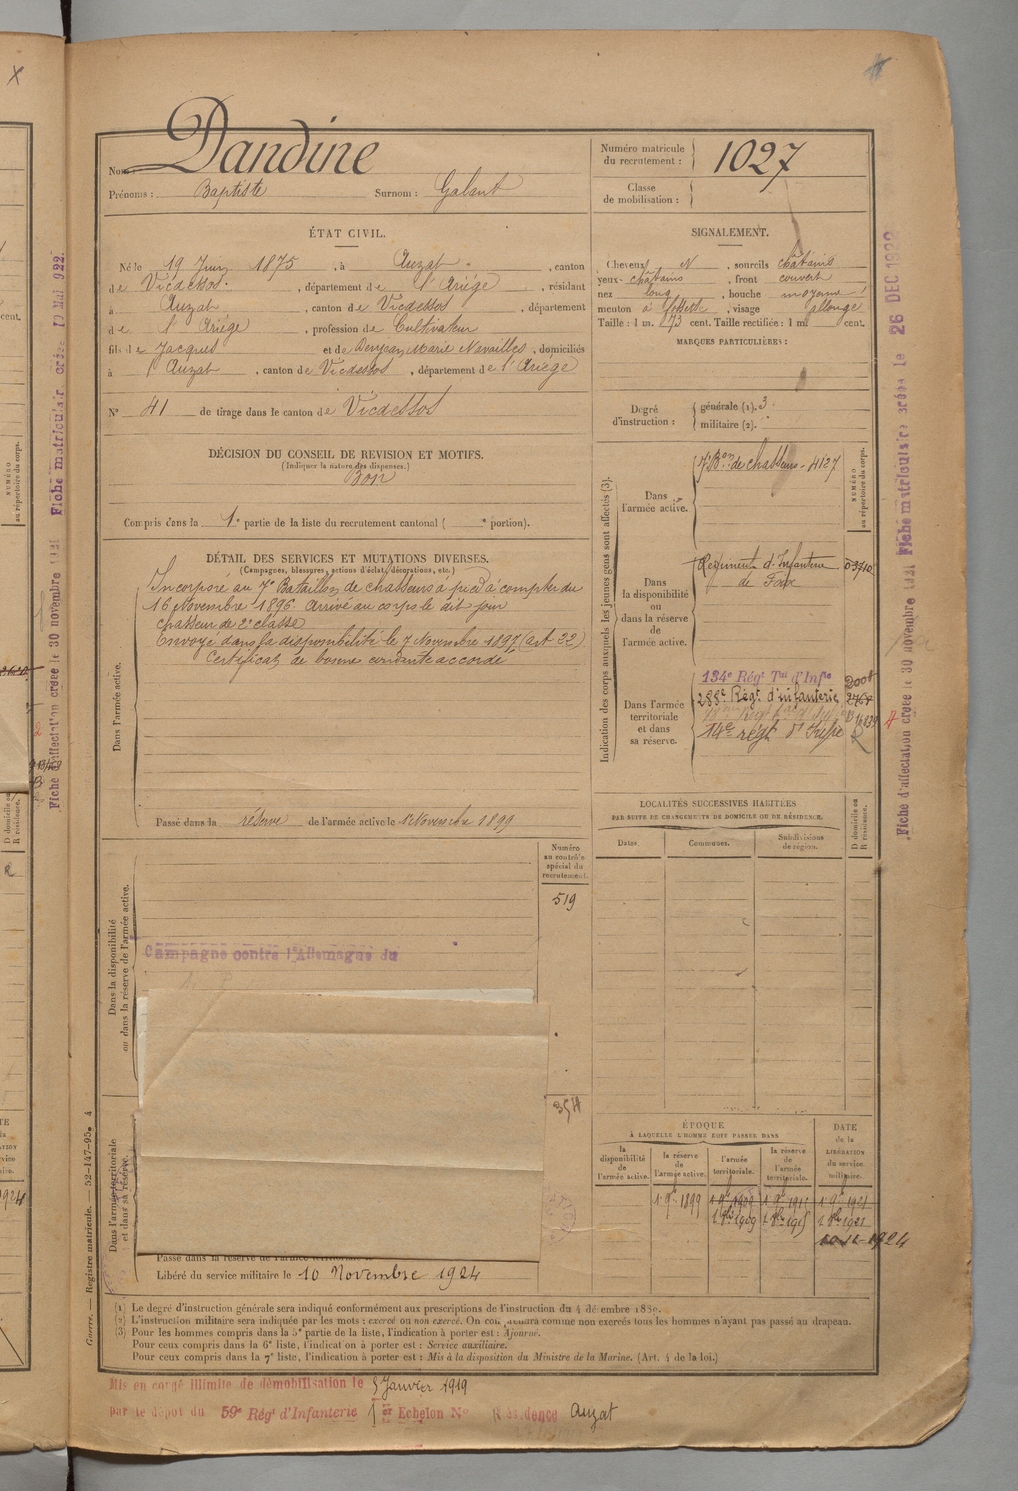 Nom : Dandine
Prénoms : Baptiste Surnom : Galant
Numéro matricule du recrutement : 1027
Classe de mobilisation :
ÉTAT CIVIL.
Né le 19 Juin 1875, à Auzat, canton
de Vicdessos, département de l'Ariége, résidant
à Auzat, canton de Vicdessos, département
de l'Ariége, profession de Cultivateur
fils de Jacques et de Marie Navailles, domiciliés
à Auzat, canton de Vicdessos, département de l'Ariége
N° 41 de tirage dans le canton de Vicdessos
SIGNALEMENT.
Cheveux N, sourcils châtains
yeux châtains, front couvert
nez long, bouche moyenne
menton à fossette, visage allongé
Taille : 1 m. 73 cent. Taille rectifiée : 1 m. cent.
MARQUES PARTICULIÈRES :
Degré d'instruction : générale (1). 3.
militaire (2).
DÉCISION DU CONSEIL DE REVISION ET MOTIFS.
(Indiquer la nature des dispenses.)
Bon
Compris dans la 1e partie de la liste du recrutement cantonal ( e portion).
DÉTAIL DES SERVICES ET MUTATIONS DIVERSES.
(Campagnes, blessures, actions d'éclat, décorations, etc.)
Dans l'armée active.
Incorporé au 7e Bataillon de chasseurs à pied à compter du
16 Novembre 1896. Arrivé au corps le dit jour
chasseur de 2e classe
Envoyé dans la disponibilité le 7 Novembre 1897 (art 22)
Certificat de bonne conduite accordé
Passé dans la réserve de l'armée active le 1 Novembre 1899
Indication des corps auxquels les jeunes gens sont affectés (3).
NUMÉRO au répertoire du corps.
Dans l'armée active.
7e Bon de chasseurs - 4127
Dans la disponibilité ou dans la réserve de l'armée active.
Régiment d'Infanterie
de Foix
Dans l'armée territoriale et dans sa réserve.
134e Régt Tal d'Infie
288e Régt. d'infanterie
14e régt d'Infie
LOCALITÉS SUCCESSIVES HABITÉES
PAR SUITE DE CHANGEMENTS DE DOMICILE OU DE RÉSIDENCE.
Dates. Communes. Subdivisions de région. D domicile ou R résidence.
Numéro au contrôle spécial du recrutement.
519
Dans la disponibilité ou dans la réserve de l'armée active.
Campagne contre l'Allemagne du
Dans l'armée territoriale et dans sa réserve.
Passé dans la réserve de l'armée territoriale
Libéré du service militaire le 10 Novembre 1924
ÉPOQUE
À LAQUELLE L'HOMME DOIT PASSER DANS
DATE de la LIBÉRATION du service militaire.
la disponibilité de l'armée active. la réserve de l'armée active. l'armée territoriale. la réserve de l'armée territoriale.
1 9bre 1899 1 9bre 1909 1 9bre 1915 1 9bre 1921
10-11-1924
(1) Le degré d'instruction générale sera indiqué conformément aux prescriptions de l'instruction du 4 décembre 1889.
(2) L'instruction militaire sera indiquée par les mots : exercé ou non exercé. On comprendra comme non exercés tous les hommes n'ayant pas passé au drapeau.
(3) Pour les hommes compris dans la 5e partie de la liste, l'indication à porter est : Ajourné.
Pour ceux compris dans la 6e liste, l'indication à porter est : Service auxiliaire.
Pour ceux compris dans la 7e liste, l'indication à porter est : Mis à la disposition du Ministre de la Marine. (Art. 4 de la loi.)
Mis en congé illimité de démobilisation le 5 Janvier 1919
par le dépôt du 59e Régt d'Infanterie 1er Echelon N° Résidence Auzat
Guerre. — Registre matricule. — 52-147-95.
Fiche d'affectation créée le 30 novembre 1921 Fiche matriculaire créée le 26 DEC 1922
Fiche d'affectation créée le 30 novembre 1921 Fiche matriculaire créée 10 Mai 922.